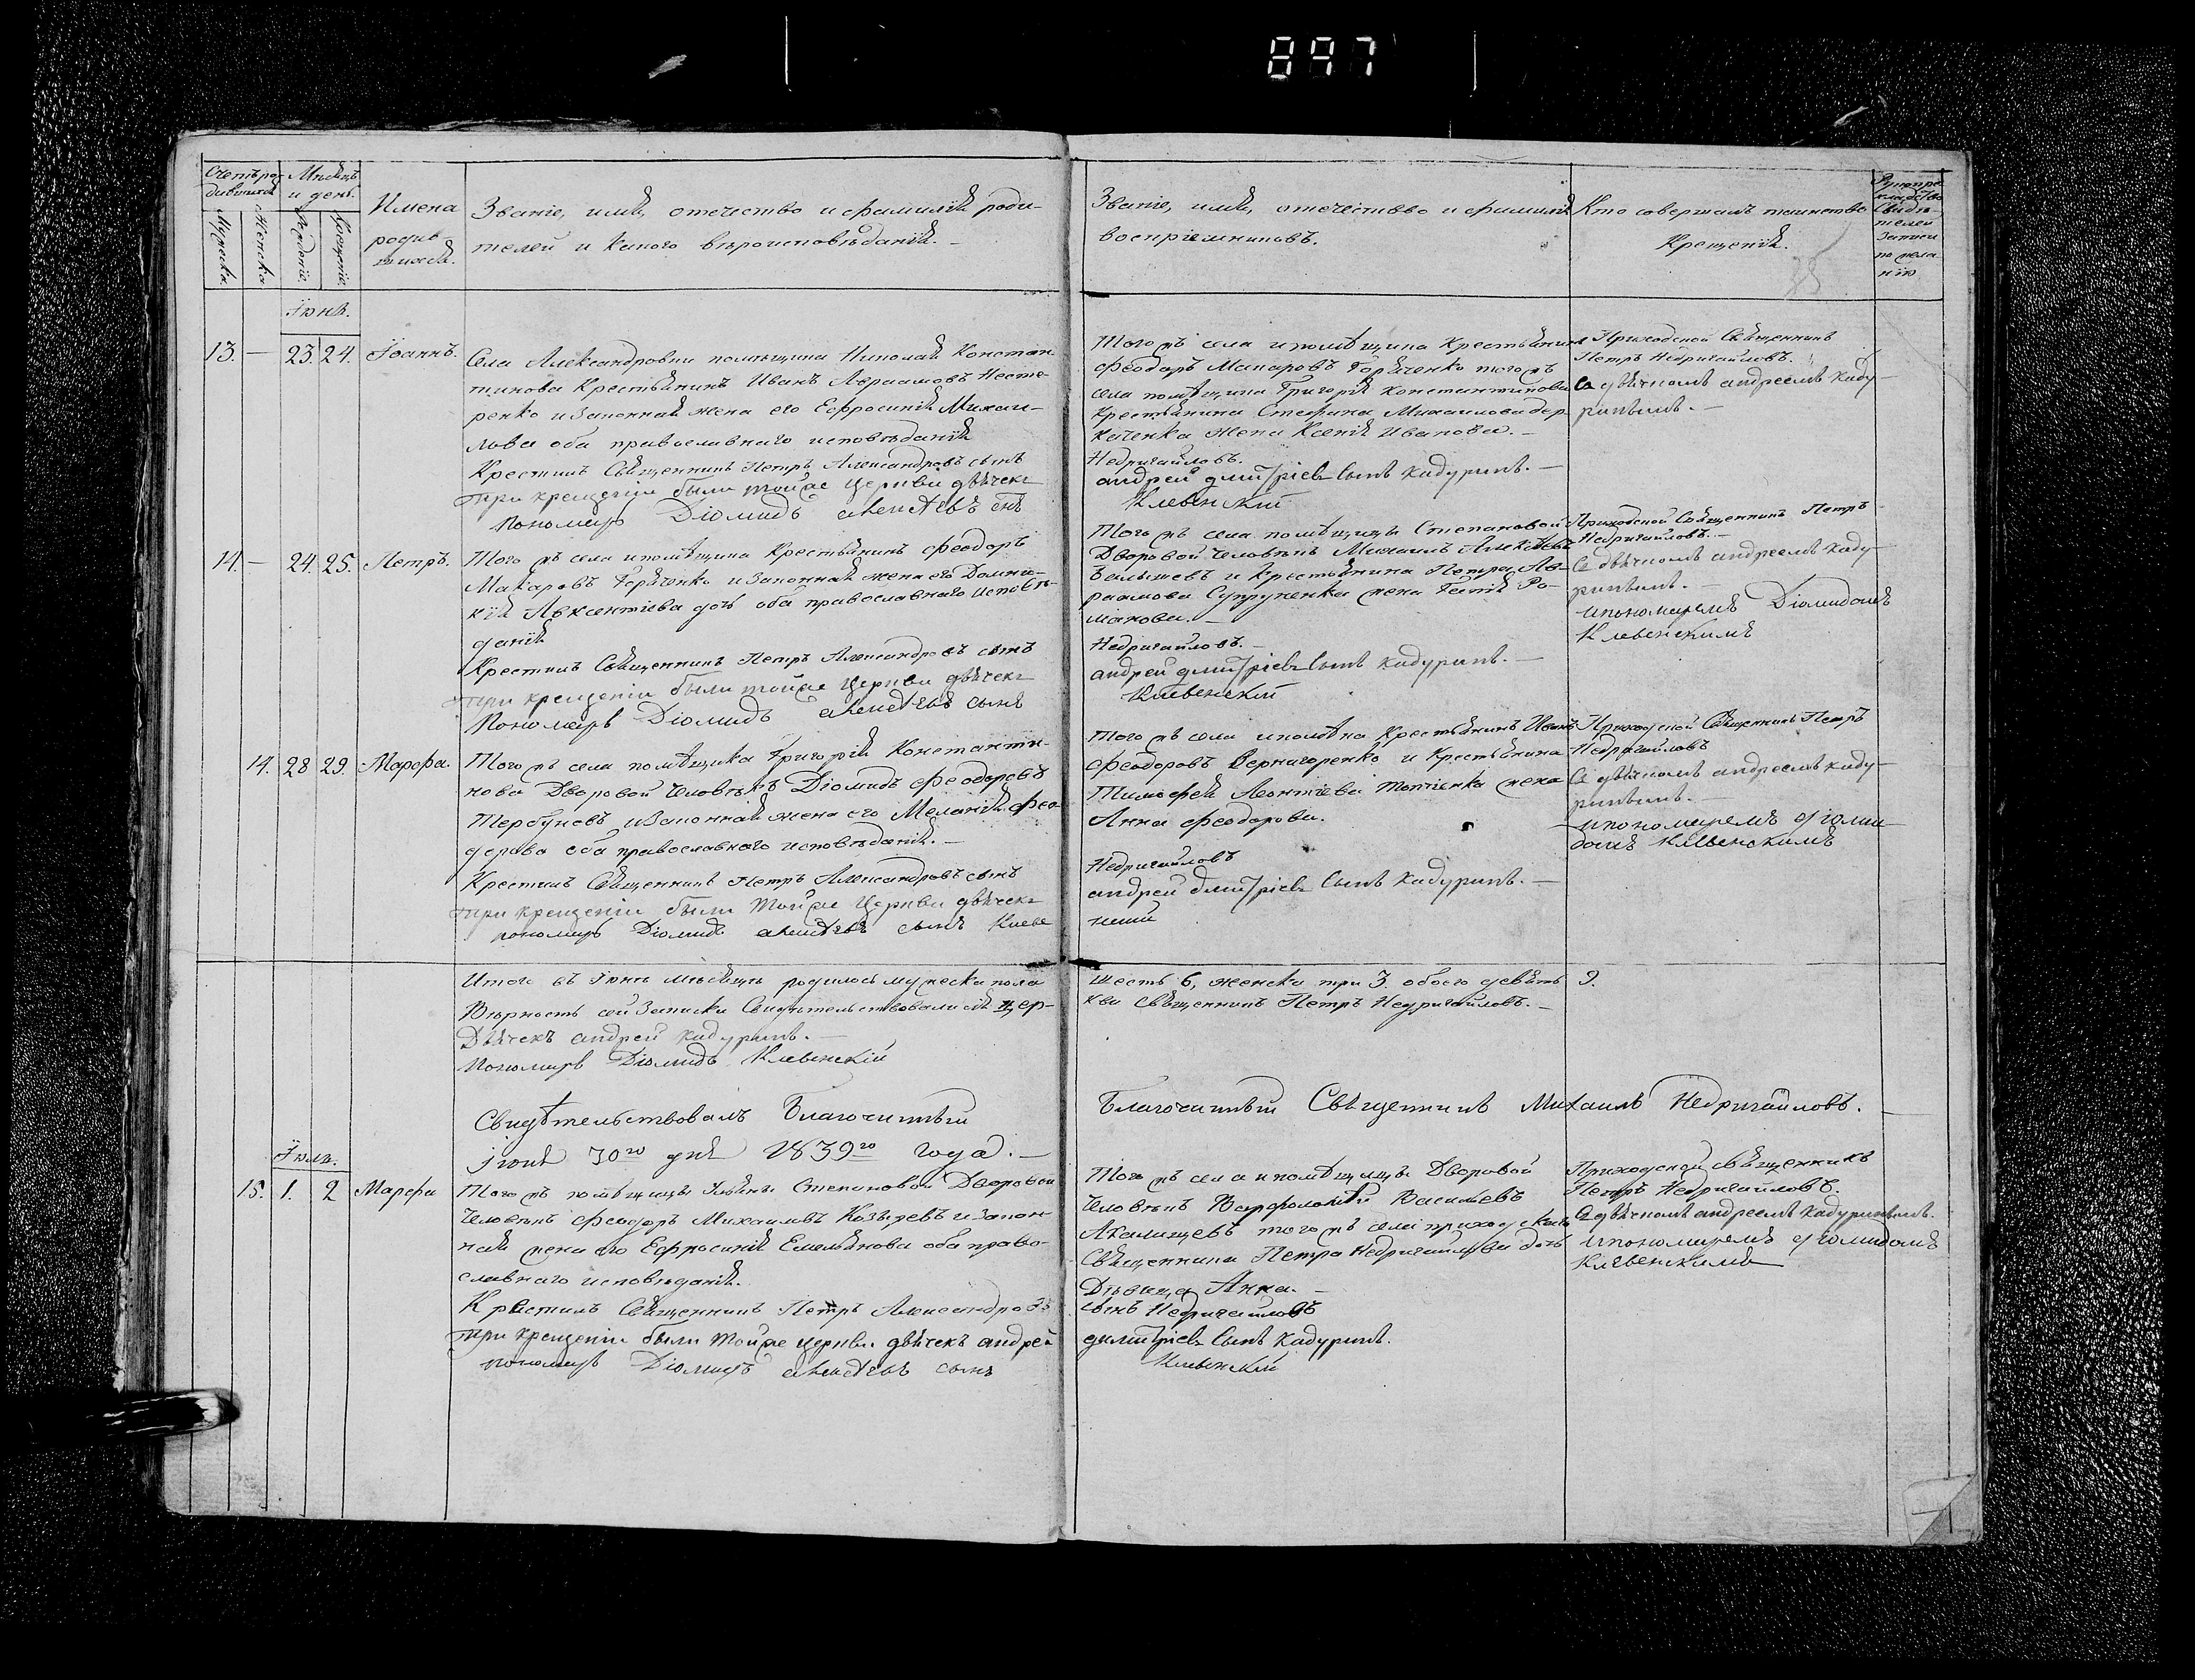 897
Счетъ ро-
дившихся
Мѣсяцъ
и день.
Мужеска.
Женска
Рожденіе.
Крещеніе.
Имена
родив-
шихся.
Званіе, имя, отечество и фамилія роди-
телей и какого вѣроисповѣданія. -
Званіе, имя, отечество и фамилія
воспріемниковъ.
Кто совершалъ таинство
Крещенія.
Свидѣ-
телей
записи
по жела-
нію
Іюнь.
13. - 23. 24. Іоаннъ.
Села Александровки помѣщика Николая Констан-
тинова Крестьянинъ Иванъ Авраамовъ Несте-
ренко и Законная жена его Ефросинія Михаи-
лова оба православнаго исповѣданія
Крестилъ Священникъ Петръ Александровъ сынъ
При крещеніи были тойже Церкви дьячекъ
Пономарь Діомидъ Алексѣевъ снъ
Того жъ села и помѣщика Крестьянинъ
Феодоръ Макаровъ Горяченко того жъ
села помѣщика Григорія Константинова
Крестьянина Стефана Михаилова Дер-
каченка жена Ксенія Иванова. -
Недригайловъ.
андрей дмитріевъ сынъ кадуринъ. -
Клевенскій
Приходской Священникъ
Петръ Недригайловъ.
Съ дьячкомъ андреемъ каду-
ринымъ. -
14. - 24. 25. Петръ.
Того жъ села и помѣщика Крестьянинъ Феодоръ
Макаровъ Горяченко и Законная жена его Домни-
кія Авксентіева дочь оба православнаго исповѣ-
данія
Крестилъ Священникъ Петръ Александровъ сынъ
При крещеніи были тойже Церкви дьячекъ
Пономарь Діомидъ Алексѣевъ сынъ
Того жъ села помѣщицы Степановой
Дворовой Человѣкъ Михаилъ Алексѣевъ
и Крестьянина Петра Ав-
раамова Супруненка жена Ро-
манова. -
Недригайловъ. -
андрей дмитріевъ сынъ кадуринъ. -
Клевенскій
Приходской Священникъ Петръ
Недригайловъ. -
Съ дьячкомъ андреемъ каду-
ринымъ. -
и пономаремъ Діомидомъ
Клевенскимъ
14. 28 29. Марфа.
Того жъ села помѣщика Григорія Константи-
нова Дворовой Человѣкъ Діомидъ Феодоровъ
Тербуневъ и Законная жена его Меланія Фео-
дорова оба православнаго исповѣданія. -
Крестилъ Священникъ Петръ Александровъ сынъ
При крещеніи были тойже Церкви дьячекъ
пономарь Діомидъ Алексѣевъ сынъ Клеве
Того жъ села и помѣщика Крестьянинъ Иванъ
Феодоровъ Вернигоренко и Крестьянина
Тимофея Леонтіева жена
Анна Феодорова.
Недригайловъ
андрей дмитріевъ сынъ кадуринъ. -
нский
Приходской Священникъ Петръ
Недригайловъ
Съ дьячкомъ андреемъ каду-
ринымъ. -
и пономаремъ діоми
домъ Клевенскимъ
Итого въ Іюнѣ мѣсяцѣ родилось мужеска пола
шесть 6, женска три 3. обоего девять 9.
Вѣрность сей Записки Свидѣтельствовали сея Цер-
кви Священникъ Петръ Недригайловъ. -
Дьячекъ андрей кадуринъ. -
Пономарь Діомидъ Клевенскій
Свидѣтельствовалъ Благочинный
Благочинный Священникъ Михаилъ Недригайловъ.
Іюня 30го дня 1839го года. -
Іюль.
15. 1. 2 Марфа
Того жъ помѣщицы Степановой Дворовой
Человѣкъ Феодоръ Михаиловъ Козыревъ и Закон-
ная жена его Ефросинія Емельянова оба право-
славнаго исповѣданія.
Крестилъ Священникъ Петръ Александровъ
При крещеніи были тойже церкви дьячекъ андрей
пономарь Діомидъ Алексѣевъ сынъ
Того жъ села и помѣщицы Дворовой
Человѣкъ Варфоломѣй Васильевъ
того жъ села приходскаго
Священника Петра Недригайлова дочь
Дѣвица Анна. -
сынъ Недригайловъ
димитріевъ сынъ кадуринъ.
Клевенскій
Приходской священникъ
Петръ Недригайловъ.
Съ дьячкомъ андреемъ кадуринымъ.
и пономаремъ діомидомъ
Клевенскимъ